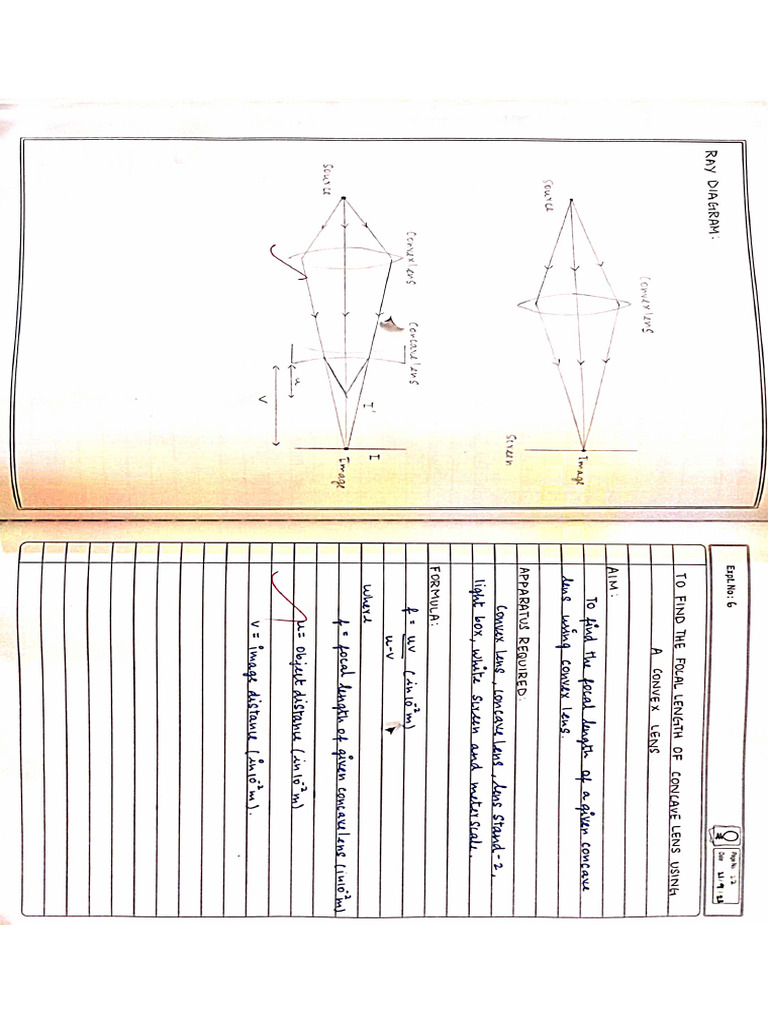 RAY DIAGRAM:
Convex lens
Source
Image
Screen
Convex lens
Concave lens
Source
I'
I
Image
u
v
Expt. No: 6
Page No: 27
Date
TO FIND THE FOCAL LENGTH OF CONCAVE LENS USING
A CONVEX LENS
AIM:
To find the focal length of a given concave
lens using convex lens.
APPARATUS REQUIRED:
Convex lens, concave lens, lens stand-2,
light box, white screen and meter scale.
FORMULA:
f = uv (in 10⁻² m)
u-v
where
f = focal length of given concave lens (in 10⁻² m)
u = object distance (in 10⁻² m)
v = image distance (in 10⁻² m).